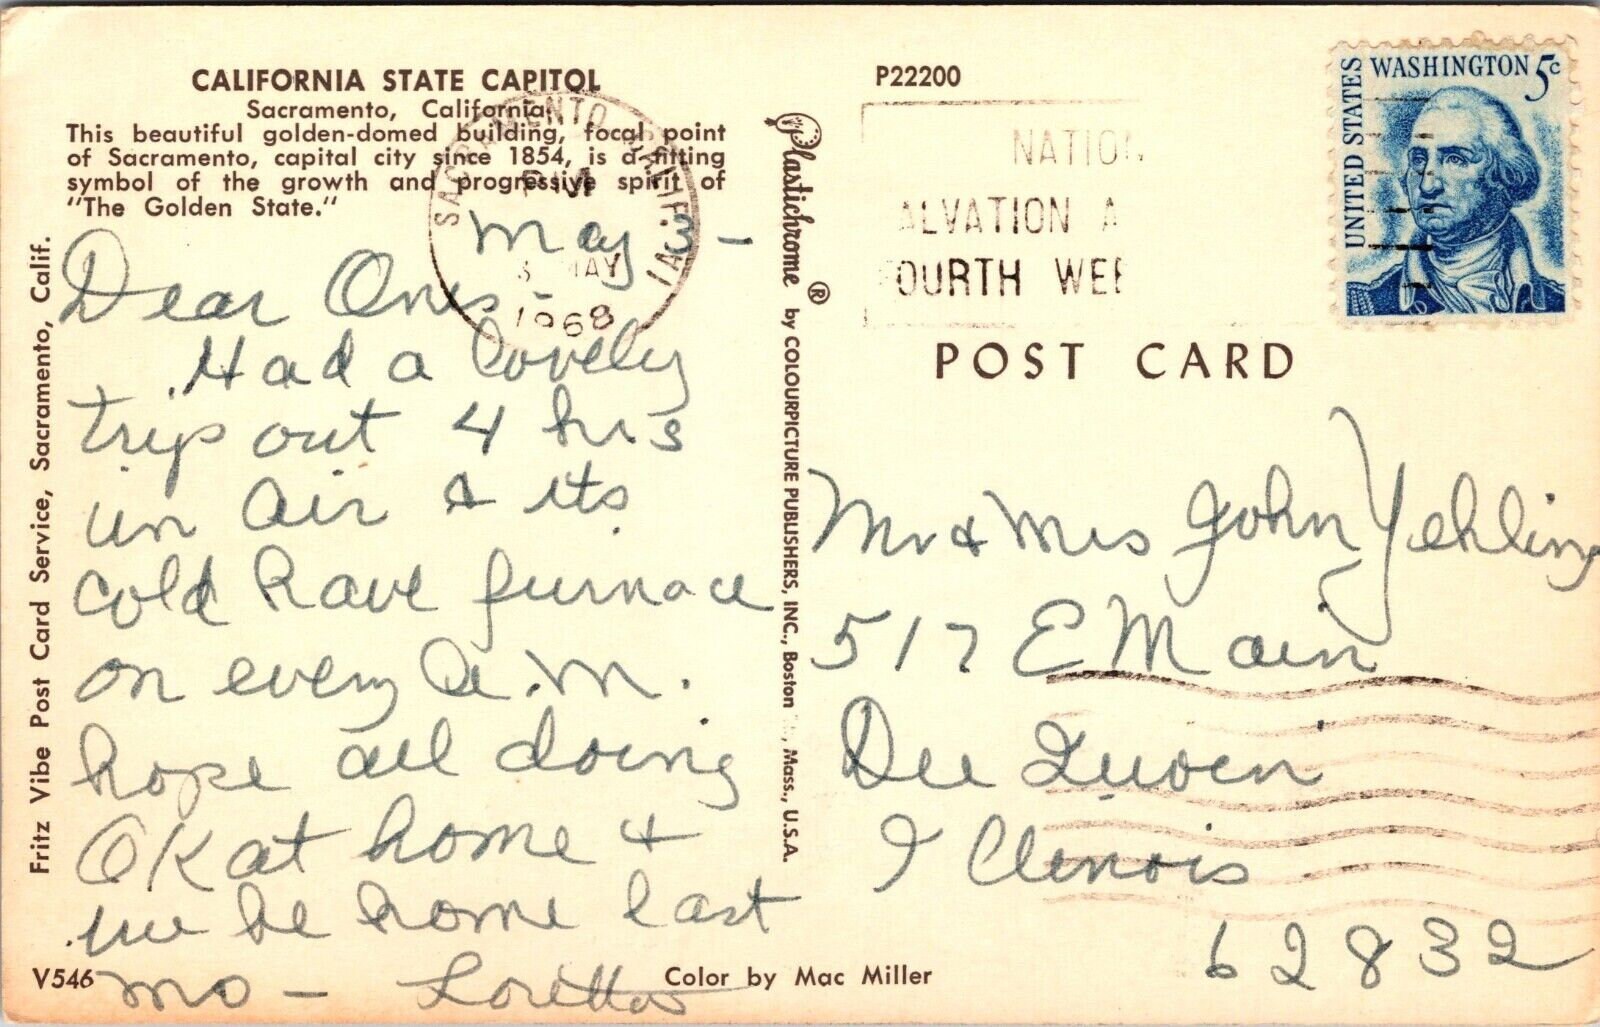 CALIFORNIA STATE CAPITOL
Sacramento, California.
This beautiful golden-domed building, focal point
of Sacramento, capital city since 1854, is a fitting
symbol of the growth and progressive spirit of
"The Golden State."
SACRAMENTO CALIF
PM
3 MAY
1968
May 3 -
Dear Ones -
Had a lovely
trip out 4 hrs
in air & its
cold have furnace
on every A.M.
hope all doing
OK at home &
we be home last
mo - Loretta
V546
Fritz Vibe Post Card Service, Sacramento, Calif.
Plastichrome ® by COLOURPICTURE PUBLISHERS, INC., Boston , Mass., U.S.A.
Color by Mac Miller
P22200
NATION
ALVATION A
FOURTH WEE
UNITED STATES
WASHINGTON 5c
POST CARD
Mr & Mrs John Yehling
517 E Main
Du Quoin
Illinois
62832